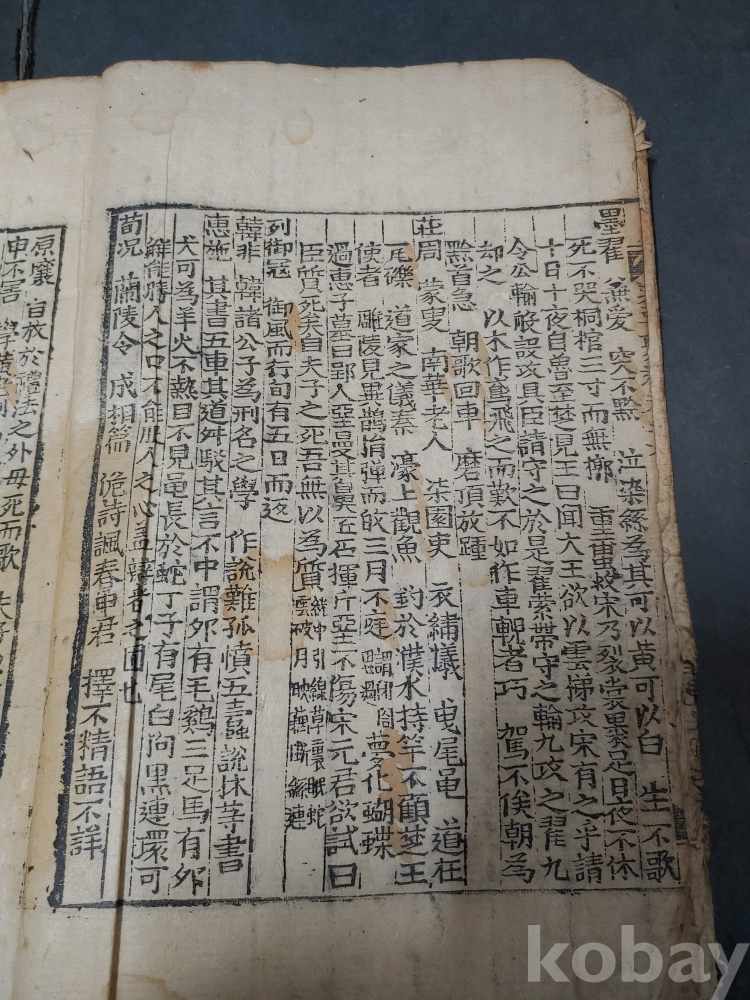 墨翟 兼愛 突不黔 泣染絲爲其可以黃可以白 生不歌
死不哭桐棺三寸而無槨 重繭救宋乃裂裳裹足日夜不休
十日十夜自魯至楚見王曰聞大王欲以雲梯攻宋有之乎請
令公輸般設攻具臣請守之於是翟縈帶守之輪九攻之翟九
却之 以木作鳶飛之而歎不如作車輗者巧 駕不俟朝爲
黔首急 朝歌回車 磨頂放踵
莊周 蒙叟 南華老人 柒園吏 衣繡犧 曳尾龜 道在
瓦礫 道家之儀秦 濠上觀魚 釣於濮水持竿不顧楚王
使者 雕陵見異鵲捐彈而 三月不庭 夢化蝴蝶
過惠子墓曰郢人堊曼其鼻匠石揮斤堊不傷宋元君欲試曰
臣質死矣自夫子之死吾無以爲質 引線草裏眠蛇
列御寇 御風而行旬有五日而返
韓非 韓諸公子爲刑名之學 作說難孤憤五蠹說抹等書
惠施 其書五車其道舛駁其言不中謂卵有毛鷄三足馬有卵
犬可爲羊火不熱目不見龜長於蛇丁子有尾白狗黑連環可
解能勝人之口不能服人之心盖辯者之囿也
荀况 蘭陵令 成相篇 佹詩諷春申君 擇不精語不詳
原壤 自放於禮法之外母死而歌
申不害
kobay